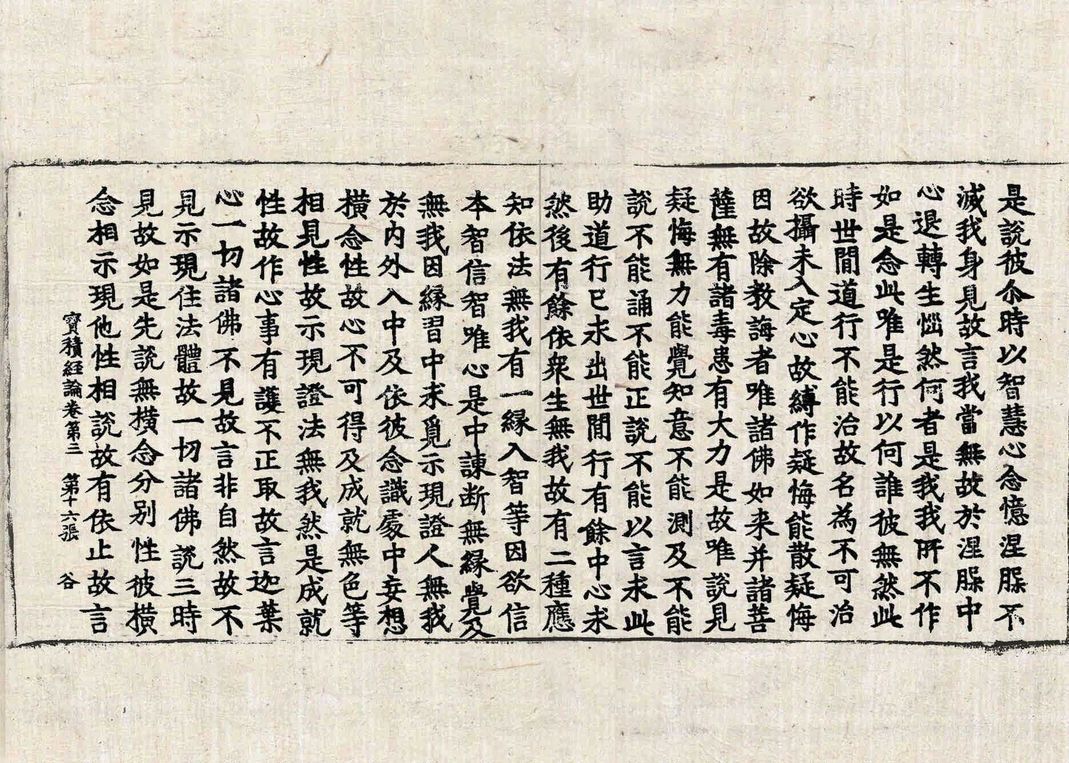 是說彼尒時以智慧心念憶涅槃不
滅我身見故言我當無故於涅槃中
心退轉生惱然何者是我我所不作
如是念此唯是行以何誰彼無然此
時世間道行不能治故名為不可治
欲攝未入定心故縛作疑悔能散疑悔
因故除教誨者唯諸佛如来并諸菩
薩無有諸毒患有大力是故唯說見
疑悔無力能覺知意不能測及不能
說不能誦不能正說不能以言求此
助道行已求出世間行有餘中心求
然後有餘依衆生無我故有二種應
知依法無我有一緣入智等因欲信
本智信智唯心是中諫断無緣覺及
無我因緣習中求覓示現證人無我
於内外入中及依彼念識處中妄想
橫念性故心不可得及成就無色等
相見性故示現證法無我然是成就
性故作心事有護不正取故言迦葉
心一切諸佛不見故言非自然故不
見示現住法體故一切諸佛說三時
見故如是先說無橫念分別性彼橫
念相示現他性相說故有依止故言
寳積經論卷第三 第十六張 谷